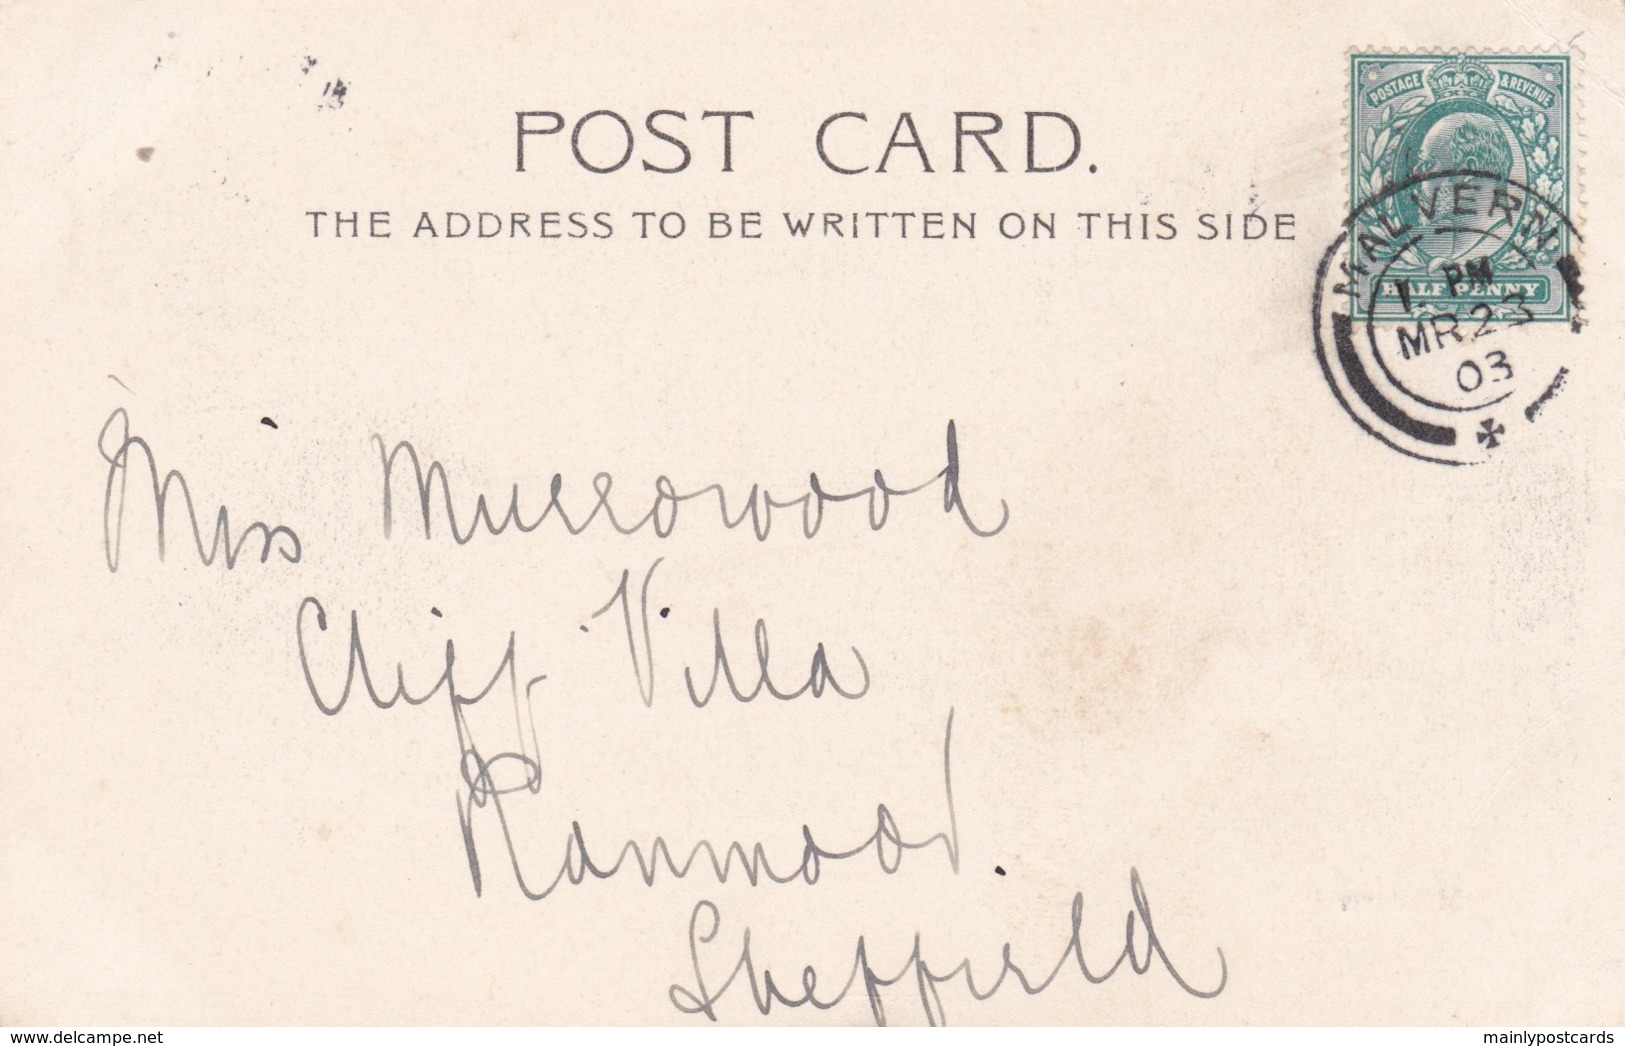 POST CARD.
THE ADDRESS TO BE WRITTEN ON THIS SIDE
POSTAGE & REVENUE
HALFPENNY
MALVERN
1. PM
MR 23
03
Miss Murrowood
Cliff Villa
Ranmoor.
Sheffield
www.delcampe.net
mainlypostcards